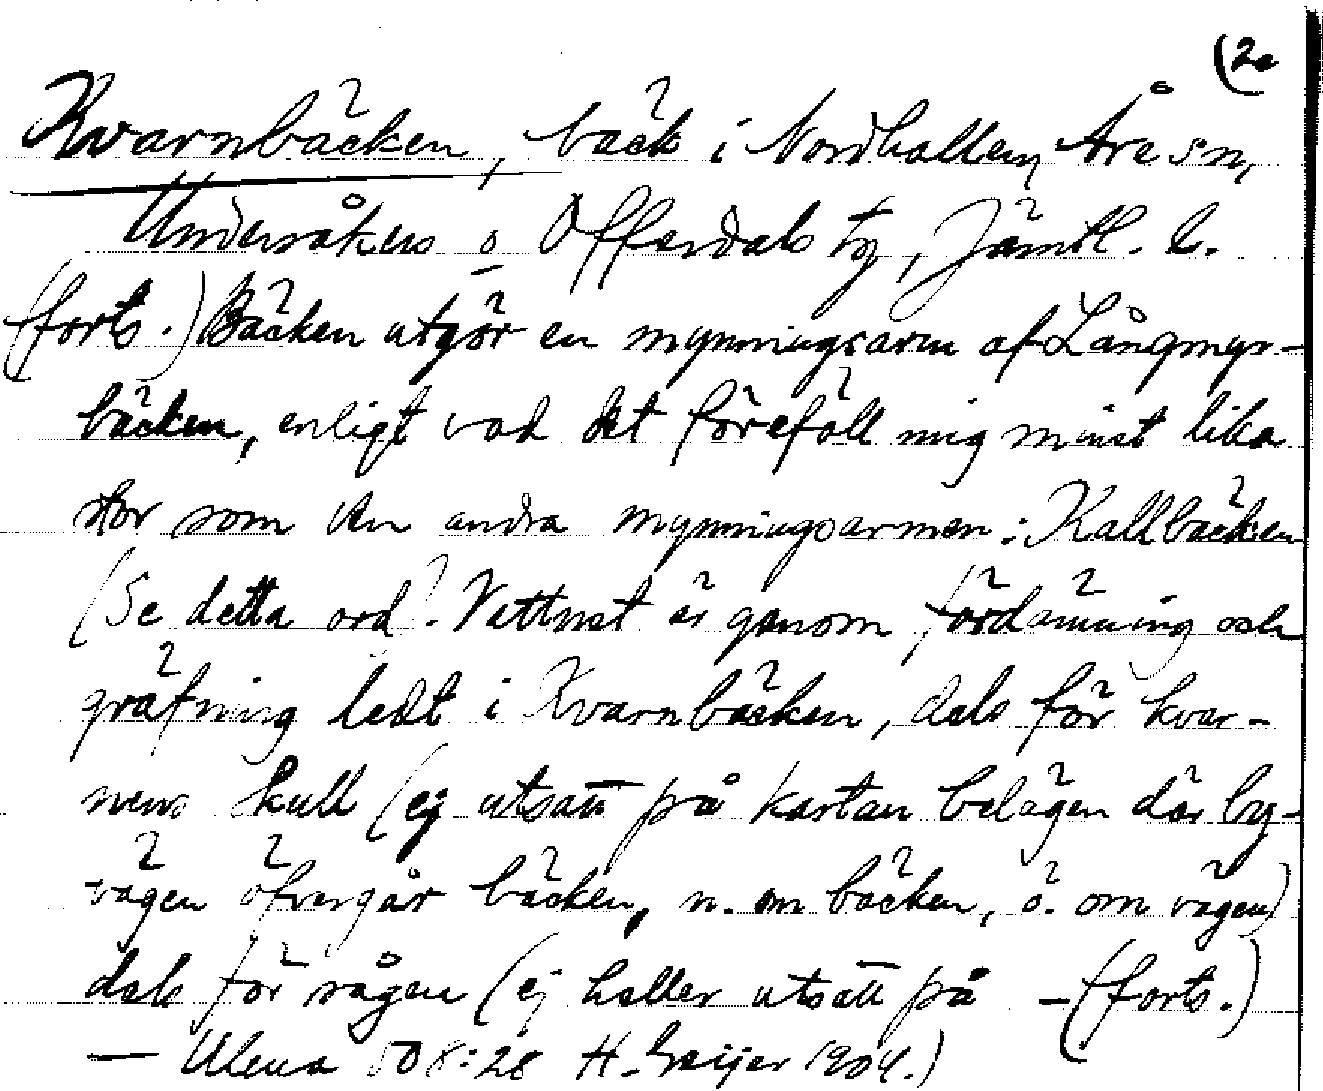 (2.
Kvarnbäcken, bäck i Nordhallen, Åre sn,
Undersåkers o Offerdals tg, Jämtl. l.
(forts.) Bäcken utgör en mynningsarm af Långmyr-
bäcken, enligt vad det föreföll mig minst lika
stor som den andra mynningsarmen: Kallbäcken
(Se detta ord! Vattnet är genom fördämning och
gräfning ledt i Kvarnbäcken, dels för kvar-
nens skull (ej utsatt på kartan belägen där by-
vägen öfvergår bäcken, n. om bäcken, ö. om vägen)
dels för sågen (ej heller utsatt på -(forts.)
— Ulena 508:28 H. Geijer 1904.)